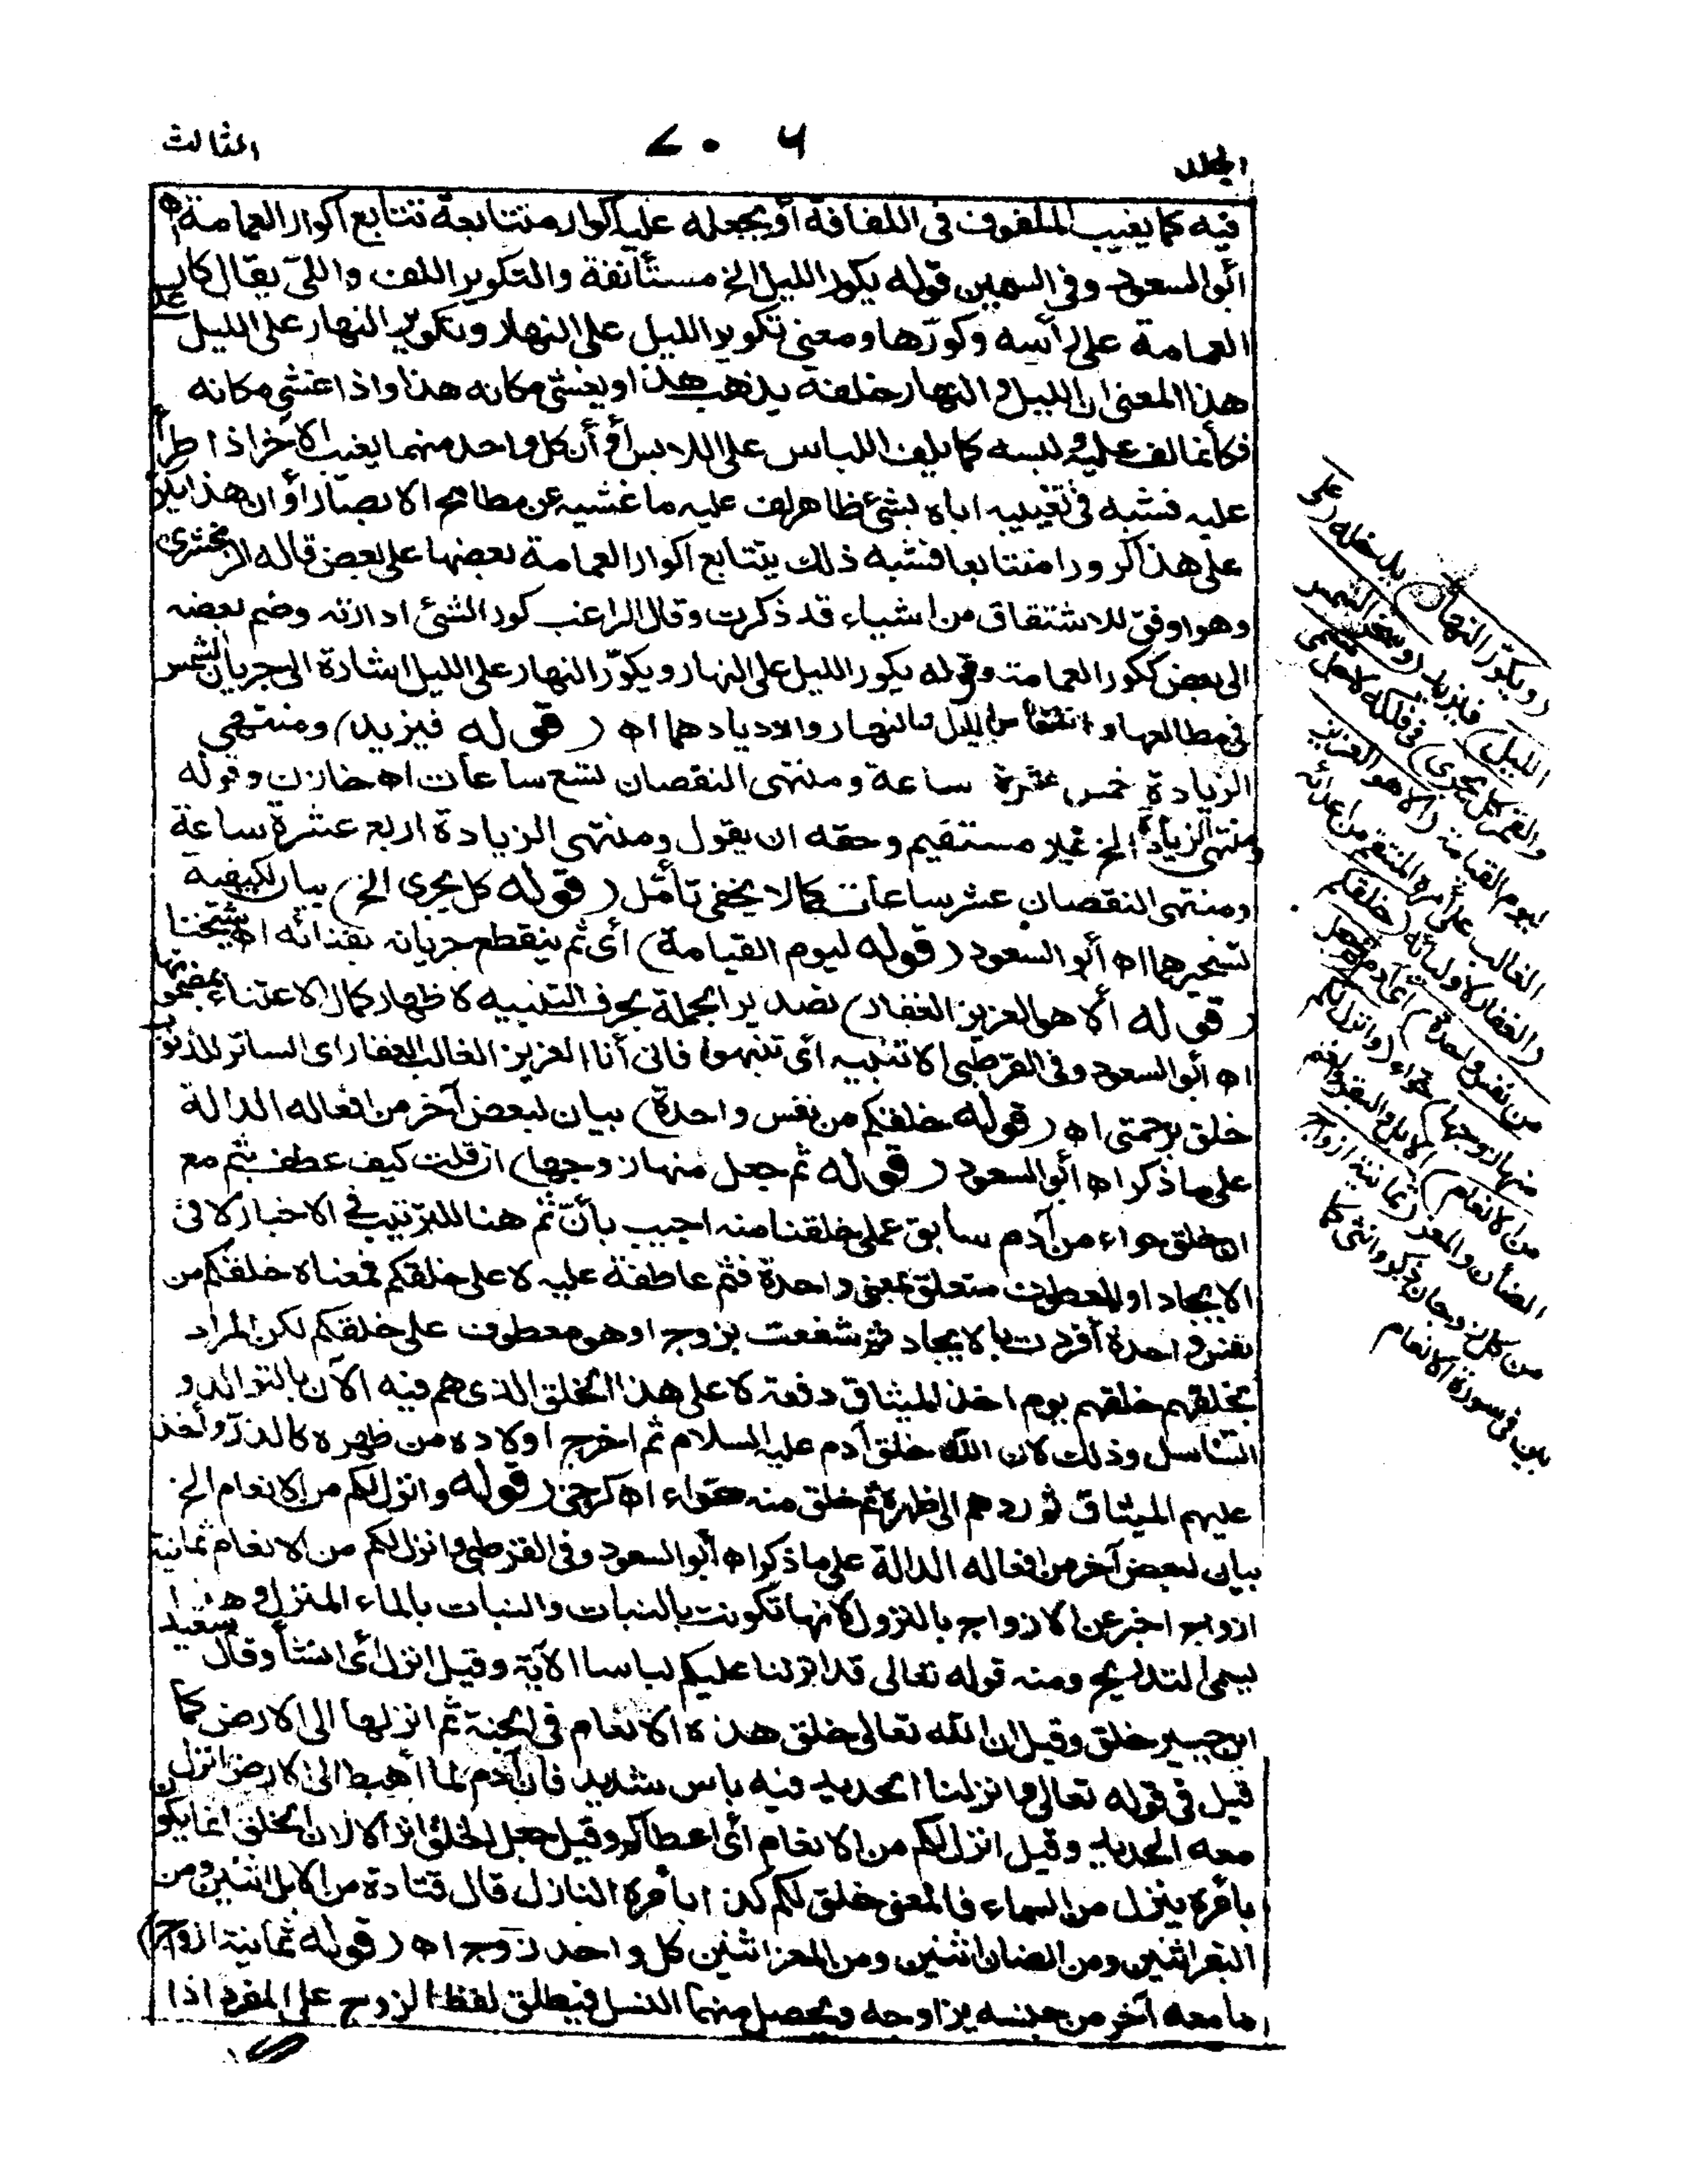 المجلد
٦٠٧
الثالث
فيه كما يغيب الملفوف في اللفافة أو يجعله عليه كوار متتابعة تتابع أكوار العمامة اه
أبو السعود وفي السمين قوله يكور الليل الخ مستأنفة والتكوير اللف واللي يقال كار
العمامة على رأسه وكورها ومعنى تكوير الليل على النهار وتكوير النهار على الليل على
هذا المعنى ان الليل والنهار خلفة يذهب هذا ويغشى مكانه هذا واذا غشي مكانه
فكأنما لف عليه ولبسه كما يلف اللباس على اللابس أو أن كل واحد منهما يغيب الآخر اذا طرأ
عليه فشبه في تغييبه اياه بشئ ظاهر لف عليه ما غشيه عن مطامح الابصار أو ان هذا يكر
على هذا كرورا متتابعا فشبه ذلك يتتابع اكوار العمامة بعضها على بعض قاله الزمخشري
وهو اوفق للاشتقاق من اشياء قد ذكرت وقال الراغب كور الشئ ادارته وضم بعضه
الى بعض ككور العمامة وقوله يكور الليل على النهار ويكوّر النهار على الليل اشارة الى جريان الشمس
في مطالعها وانتقاص الليل والنهار وازديادهما اه (قوله فيزيد) ومنتهى
الزيادة خمس عشرة ساعة ومنتهى النقصان تسع ساعات اه خازن وقوله
ومنتهى الزيادة الخ غير مستقيم وحقه ان يقول ومنتهى الزيادة اربع عشرة ساعة
ومنتهى النقصان عشر ساعات كما لا يخفى تأمل (قوله كل يجرى الخ) بيان لكيفية
تسخيرهما اه أبو السعود (قوله ليوم القيامة) أي ثم ينقطع جريانه بفنائه اه شيخنا
(قوله ألا هو العزيز الغفار) تصدير الجملة بحرف التنبيه لاظهار كمال الاعتناء بمضمونها
اه أبو السعود وفي القرطبي الا تنبيه أي تنبهوا فاني أنا العزيز الغالب الغفار اى الساتر للذنوب
خلق برحمتى اه (قوله خلقكم من نفس واحدة) بيان لبعض آخر من افعاله الدالة
على ما ذكر اه أبو السعود (قوله ثم جعل منها زوجها) ان قلت كيف عطف بثم مع
ان خلق حواء من آدم سابق على خلقنا منه اجيب بأن ثم هنا للترتيب في الاخبار لا في
الايجاد او المعطوف متعلق بمعنى واحدة فثم عاطفة عليه لا على خلقكم فمعناه خلقكم من
نفس واحدة أفردت بالايجاد ثم شفعت بزوج او هو معطوف على خلقكم لكن المراد
بخلقهم خلقهم يوم اخذ الميثاق دفعة لا على هذا الخلق الذى هم فيه الآن بالتوالد و
التناسل وذلك لان الله خلق آدم عليه السلام ثم اخرج اولاده من ظهره كالذر وأخذ
عليهم الميثاق ثم ردهم الى ظهره ثم خلق منه حواء اه كرخي (قوله وانزل لكم من الانعام الخ
بيان لبعض آخر من افعاله الدالة على ما ذكر اه أبو السعود وفي القرطبي وانزل لكم من الانعام ثمانية
ازواج اخبر عن الازواج بالنزول لانها تكونت بالنبات والنبات بالماء المنزل وهذا
يسمى التدريج ومنه قوله تعالى قد انزلنا عليكم لباسا الآية وقيل انزل أى انشأ وقال سعيد
ابن جبير خلق وقيل ان الله تعالى خلق هذه الانعام في الجنة ثم انزلها الى الارض كما
قيل في قوله تعالى وانزلنا الحديد فيه باس شديد فان آدم لما أهبط الى الارض انزل
معه الحديد وقيل انزل لكم من الانعام أى اعطاكم وقيل جعل الخلق انزالا لان الخلق انما يكون
بأمره ينزل من السماء فالمعنى خلق لكم كذا بأمره النازل قال قتادة من الابل اثنين ومن
البقر اثنين ومن الضان اثنين ومن المعز اثنين كل واحد زوج اه (قوله ثمانية ازواج)
ما معه آخر من جنسه يزاوجه ويحصل منهما النسل فيطلق لفظ الزوج على المفرد اذا
(ويكوّر النهار) يدخله (على
الليل) فيزيد (وسخر الشمس
والقمر كل يجرى) في فلكه (لاجل مسمى)
ليوم القيامة (ألا هو العزيز)
الغالب على أمره المنتقم من اعدائه
(الغفار) لاوليائه (خلقكم
من نفس واحدة) اى آدم (ثم جعل
منها زوجها) حواء (وانزل لكم
من الانعام) الابل والبقر والغنم
الضأن والمعز (ثمانية ازواج)
من كل زوجان ذكر وانثى كما
بين في سورة الانعام